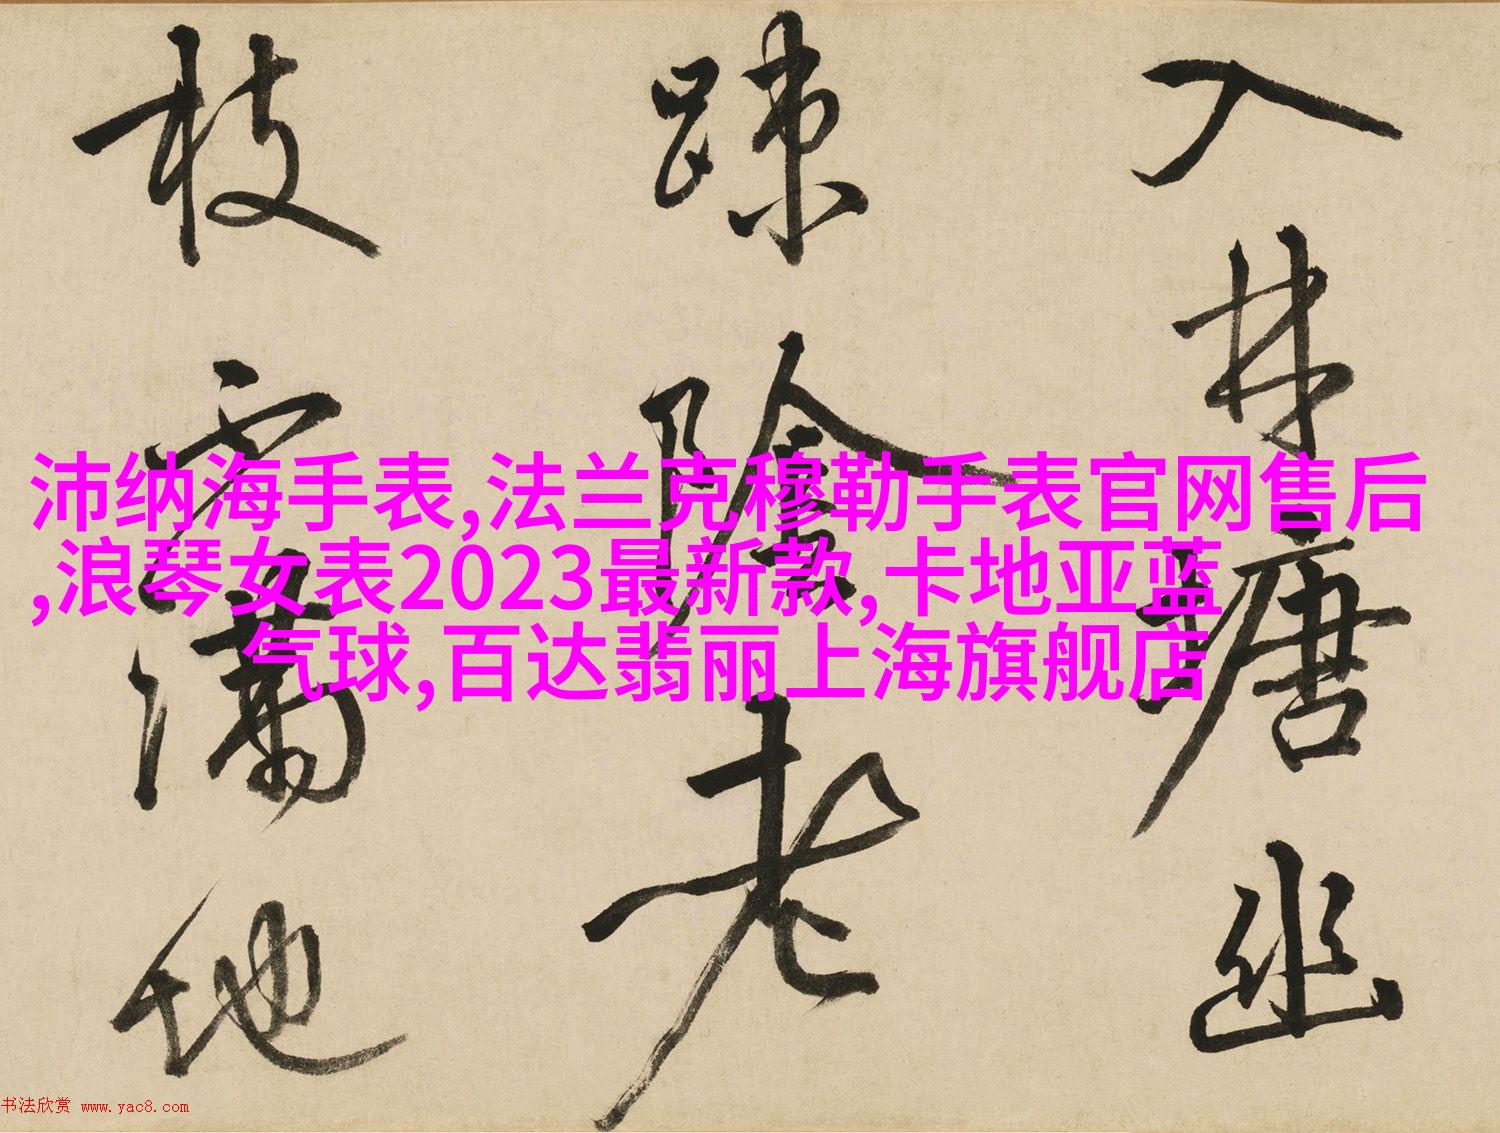 入林塘幽
疎陰老
枝雪滿地
沛纳海手表,法兰克穆勒手表官网售后
,浪琴女表2023最新款,卡地亚蓝
气球,百达翡丽上海旗舰店
书法欣赏 www.yac8.com